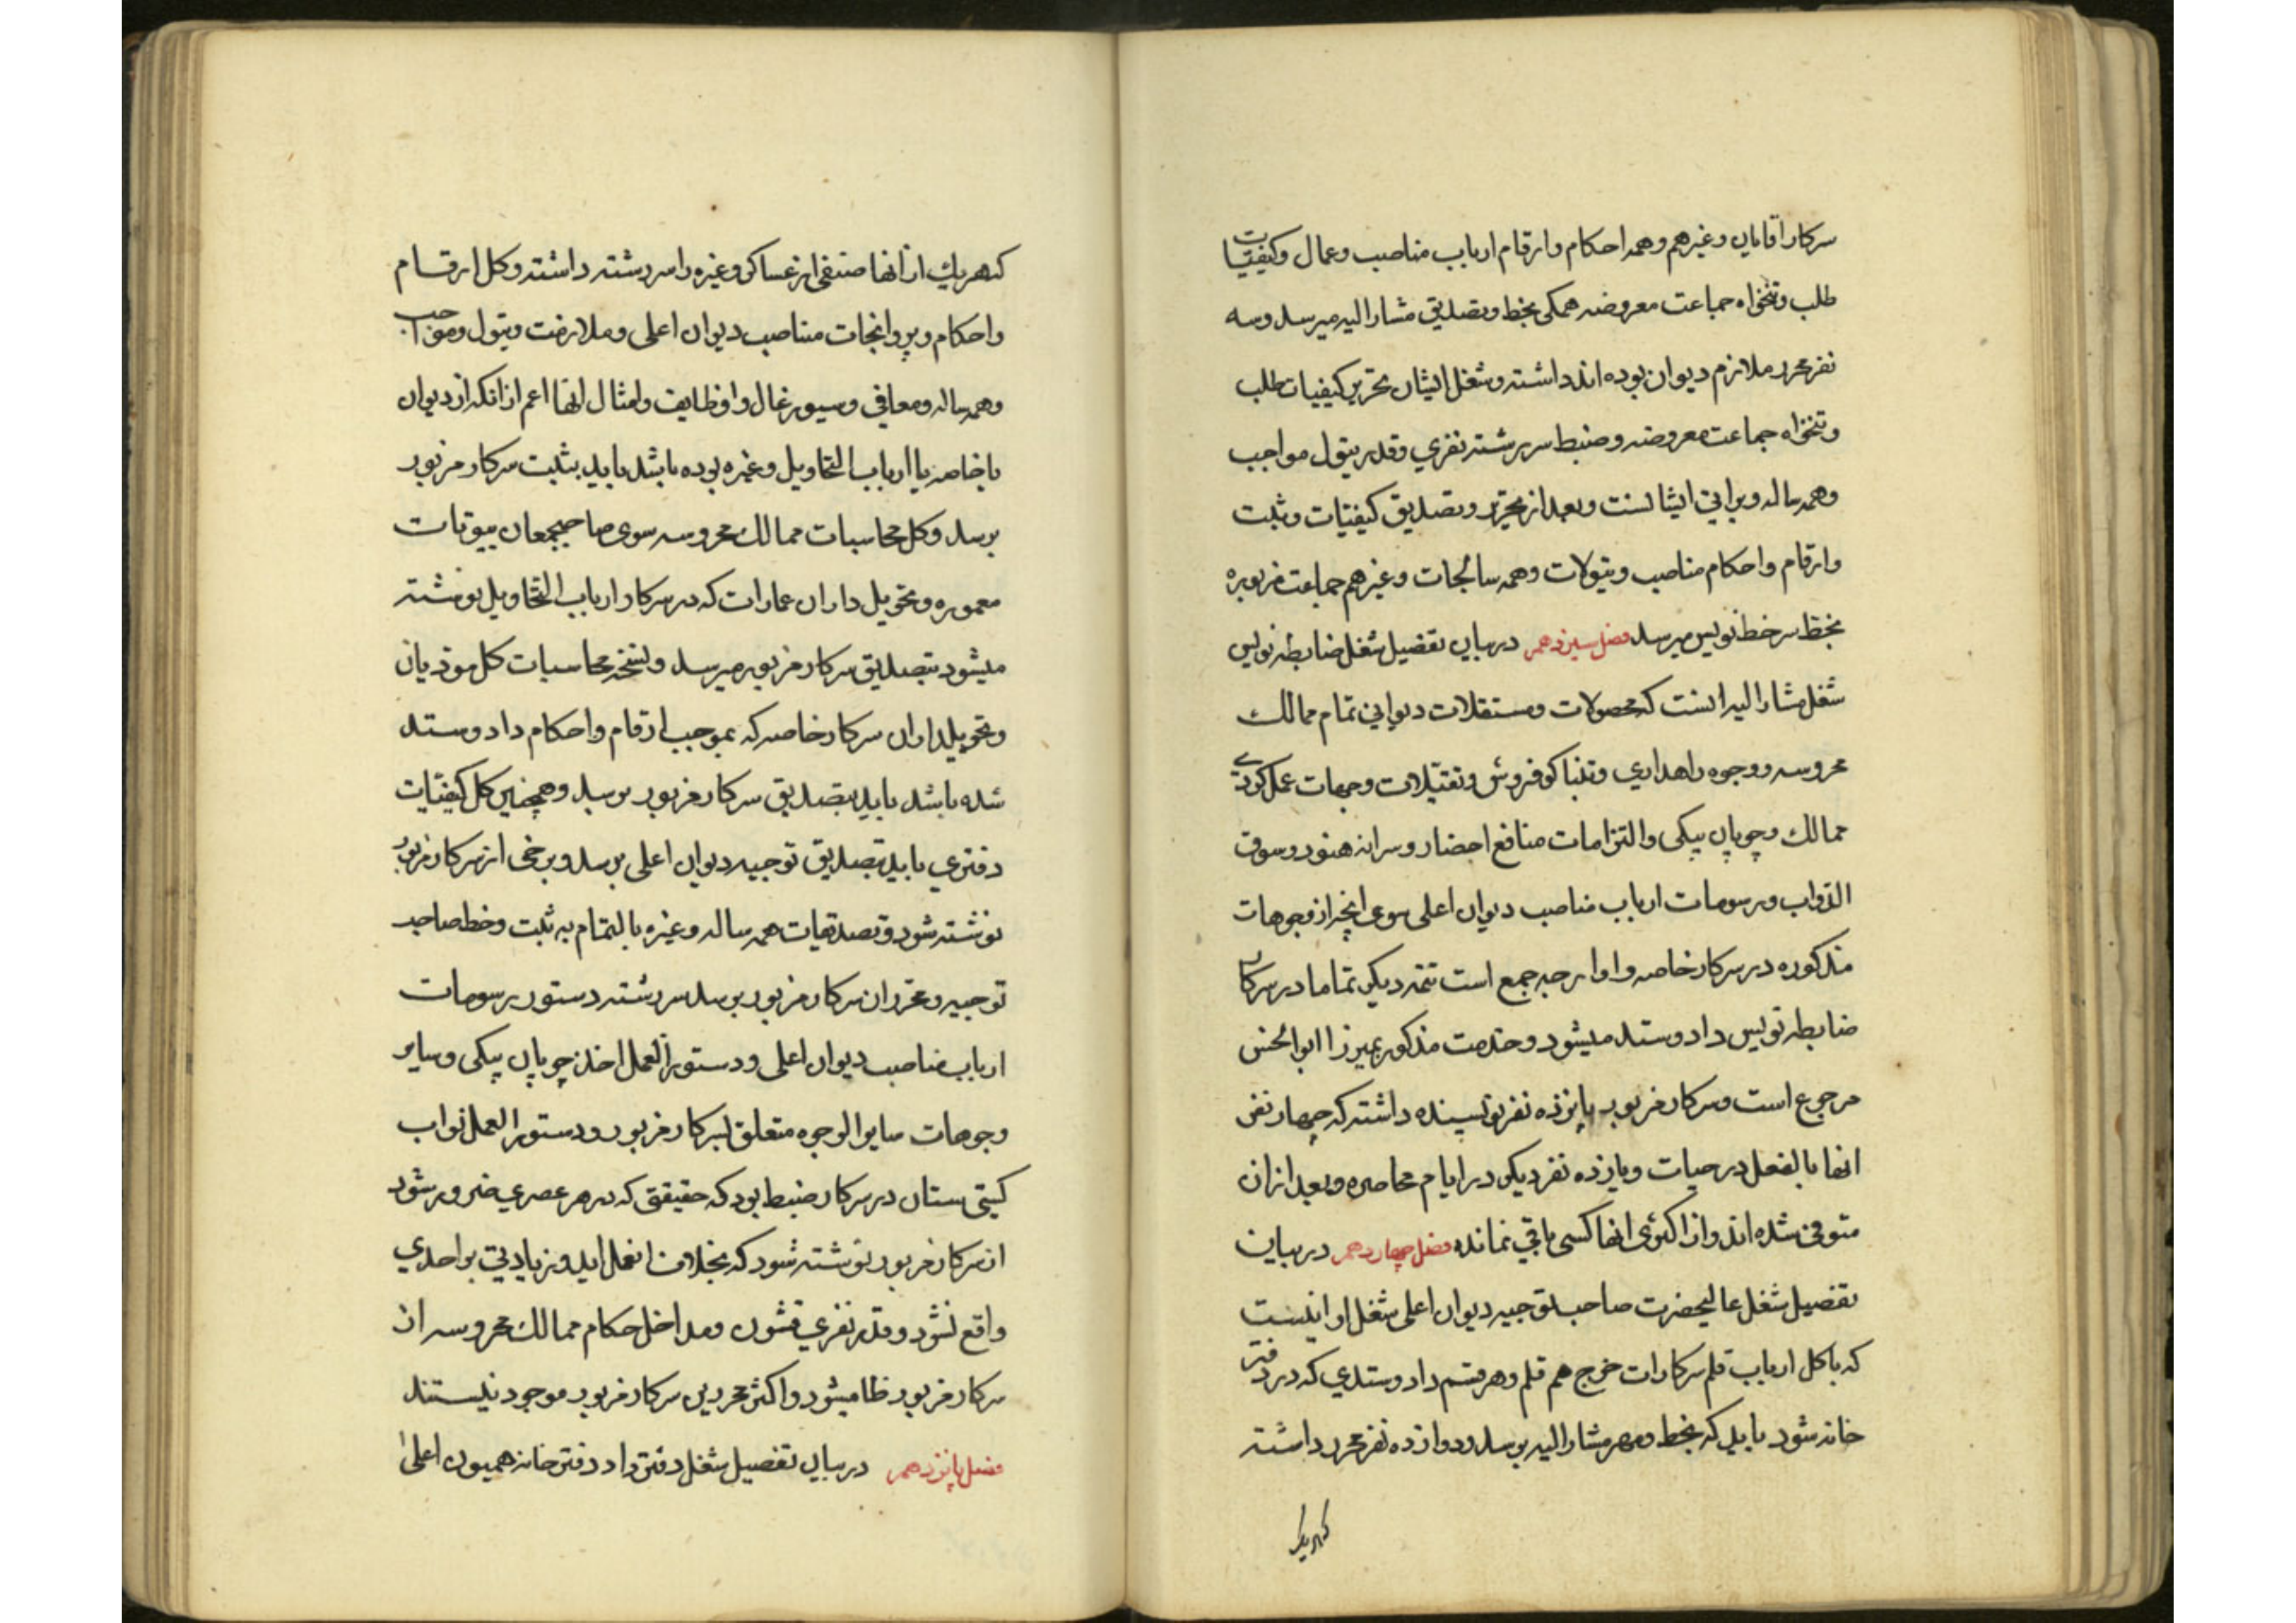 سرکار اقایان و غیرهم و همه احکام و ارقام ارباب مناصب و عمال و کیفیات
طلب و تنخواه جماعت معروضه همکی بخط و تصدیق مشار الیه میرسد و سه
نفر محرر ملازم دیوان بوده اند داشته و شغل ایشان تحریر کیفیات طلب
و تنخواه جماعت معروضه و ضبط سررشته نفری و قدر تیول مواجب
و همه ساله و براتی ایشانست و بعد از تحریر و تصدیق کیفیّات و ثبت
و ارقام و احکام مناصب و تیولات و همه سالجات و غیرهم جماعت مزبوره
بخط سرخط نویس میرسد فصل سیزدهم در بیان تفصیل شغل ضابطه نویس
شغل مشار الیه انست که محصولات و مستقلات دیوانی تمام ممالک
محروسه و وجوه راهداری و تنباکو فروش و تقبّلات و جهات عملکردی
ممالک و چوپان بیکی و التزامات منافع احضار و سرانه هنود و سوق
الدّواب و رسومات ارباب مناصب دیوان اعلی سوی انچه از وجوهات
مذکوره در سرکار خاصه و اوارجه جمع است تتمه دیکر تماما در سرکار
ضابطه نویس داد و ستد میشود و خدمت مذکور بمیرزا ابوالحسن
مرجوع است و سرکار مزبور پانزده نفر نویسنده داشته که چهار نفر
انها بالفعل در حیات و یازده نفر دیکر در ایام محاصره و بعد از ان
متوفی شده اند و از اکثری انها کسی باقی نمانده فصل چهاردهم در بیان
تفصیل شغل عالیحضرت صاحب توجیه دیوان اعلی شغل او اینست
که با کل ارباب قلم سرکارات خرج هم قلم و هر قسم داد و ستدی که در دفتر
خانه شود باید که بخط و مهر مشار الیه برسد و دوازده نفر محرر داشته
کهریک
که هریک از انها صنفی از عساکر و غیره را سررشته داشته و کل ارقام
و احکام و پروانجات مناصب دیوان اعلی و ملازمت و تیول و مواجب
و همه ساله و معافی و سیورغال و اوظایف و امثال انها اعم از انکه از دیوان
یا خاصه یا ارباب التحاویل و غیره بوده باشد باید بثبت سرکار مزبور
برسد و کل محاسبات ممالک محروسه سوی صاحبجمعان بیوتات
معموره و تحویل داران عمارات که در سرکار ارباب التحاویل نوشته
میشود بتصدیق سرکار مزبور میرسد و نسخه محاسبات کل مودیان
و تحویلداران سرکار خاصه که بموجب ارقام و احکام داد و ستد
شده باشد باید بتصدیق سرکار مزبور برسد و همچنین کل کیفیّات
دفتری باید بتصدیق توجیه دیوان اعلی برسد و برخی از سرکار مزبور
نوشته شود و تصدیقات همه ساله و غیره بالتمام به ثبت و خط صاحب
توجیه و محرران سرکار مزبور برسد سررشته دستور رسومات
ارباب مناصب دیوان اعلی و دستور العمل اخذ چوپان بیکی و سایر
وجوهات سایر الوجوه متعلق بسرکار مزبور و دستور العمل نواب
کیتی ستان در سرکار ضبط بود که حقیقتی که در هر عصری ضرور شود
از سرکار مزبور نوشته شود که بخلاف ان عمل اید و زیادتی بر احدی
واقع نشود و قدر نفری قشون و مداخل حکام ممالک محروسه از
سرکار مزبور ظا میشود و اکثر محررین سرکار مزبور موجود نیستند
فصل پانزدهم در بیان تفصیل شغل دفتر دار دفتر خانه همیون اعلی